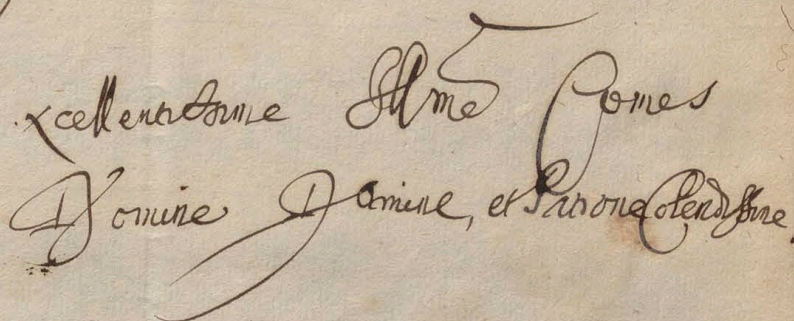 xcellentissime Illme Comes
Domine Domine, et Patrone Colendissime